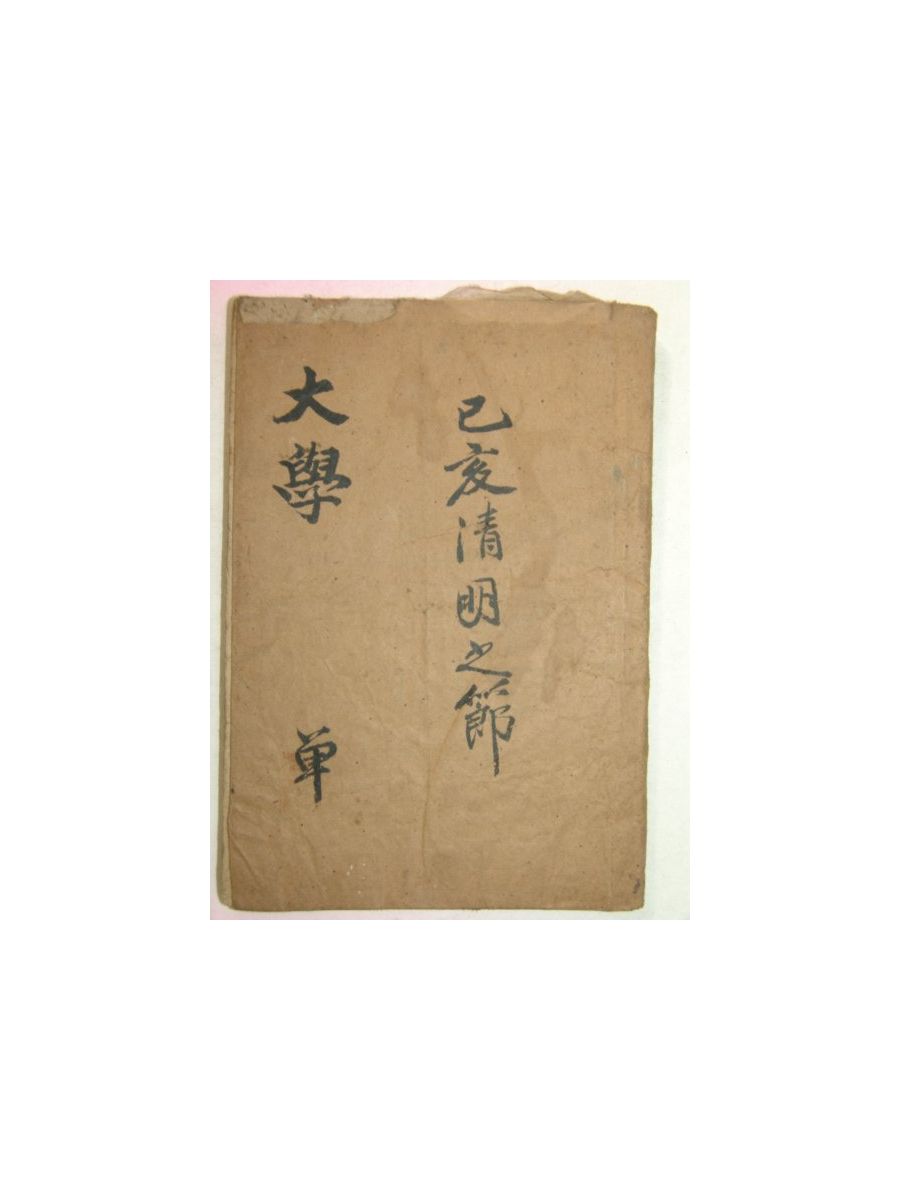 己亥清明之節
大學 单